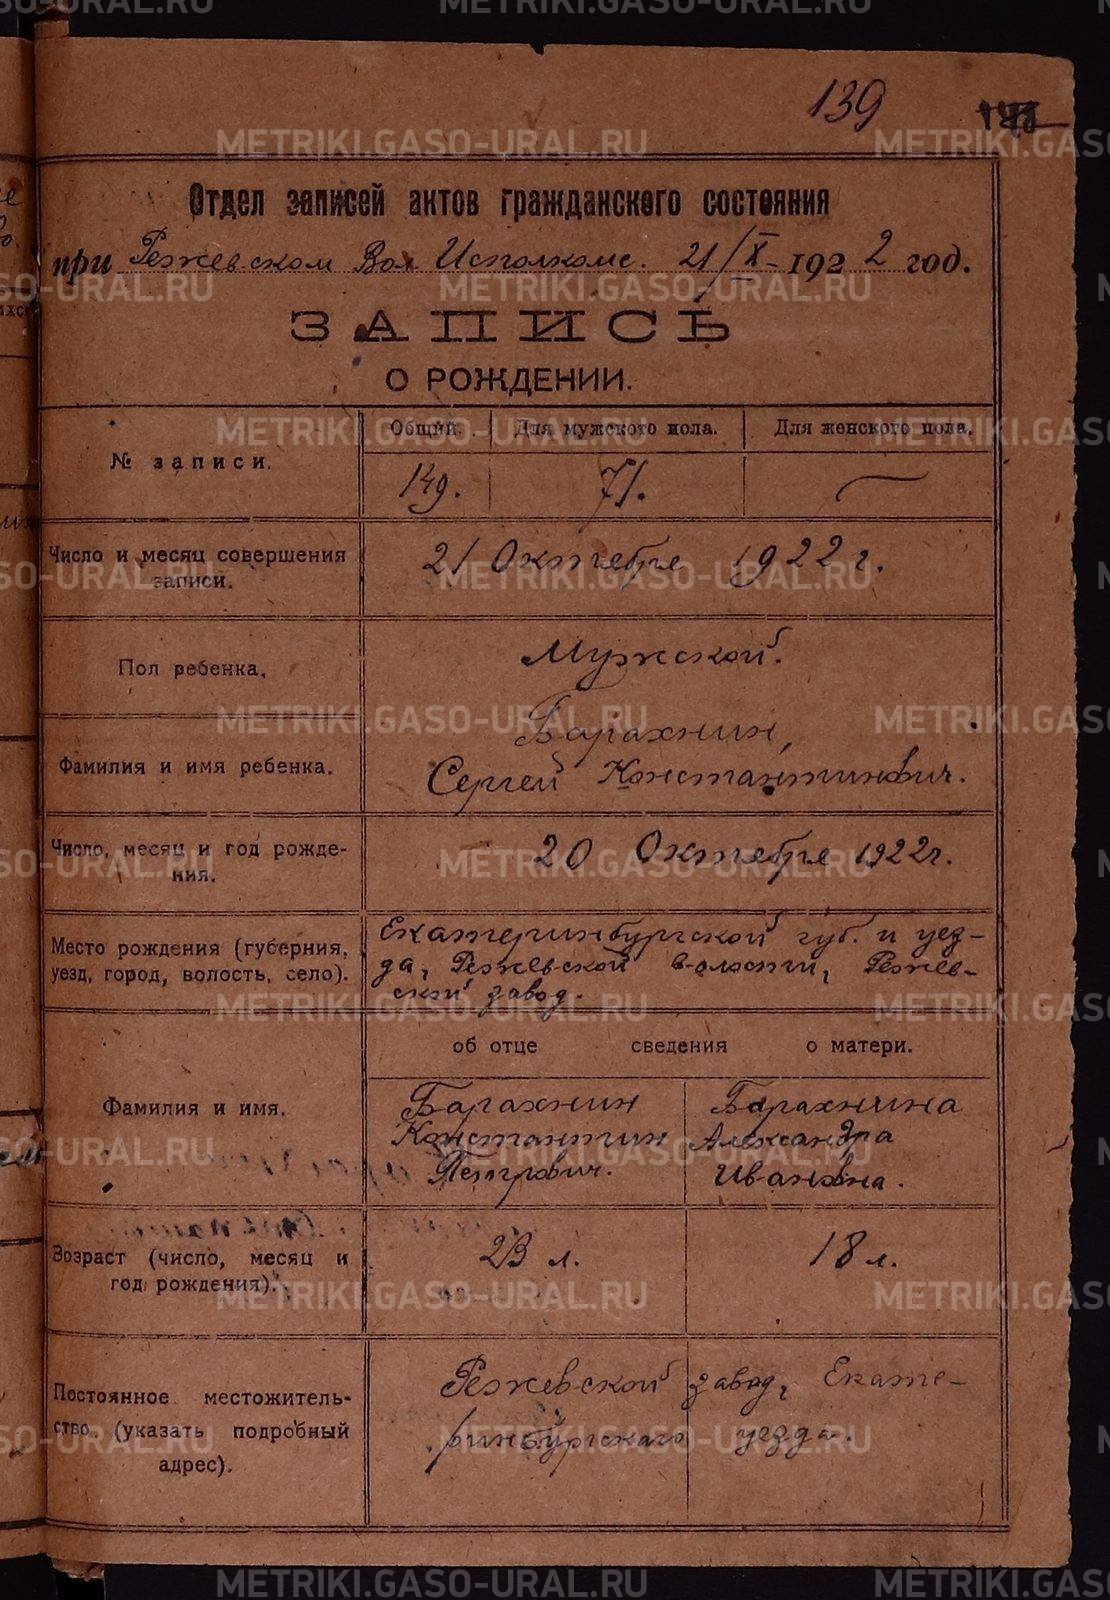 139 148
Отдел записей актов гражданского состояния
при Режевском Вол Исполкоме. 21/X - 1922 год.
ЗАПИСЬ
О РОЖДЕНИИ.
№ записи.
Общий. Для мужского пола. Для женского пола.
149. 71. —
Число и месяц совершения
записи.
21 Октебре 1922 г.
Пол ребенка.
Мужской.
Фамилия и имя ребенка.
Барахнин,
Сергей Константинович.
Число, месяц и год рожде-
ния.
20 Октебре 1922 г.
Место рождения (губерния,
уезд, город, волость, село).
Екатеринбургской губ. и уез-
да, Режевской волости, Режев-
ской завод.
об отце сведения о матери.
Фамилия и имя.
Барахнин
Константин
Петрович.
Барахнина
Александра
Ивановна.
Возраст (число, месяц и
год рождения).
23 л. 18 л.
Постоянное местожитель-
ство (указать подробный
адрес).
Режевской завод, Екате-
ринбургского уезда.
METRIKI.GASO-URAL.RU